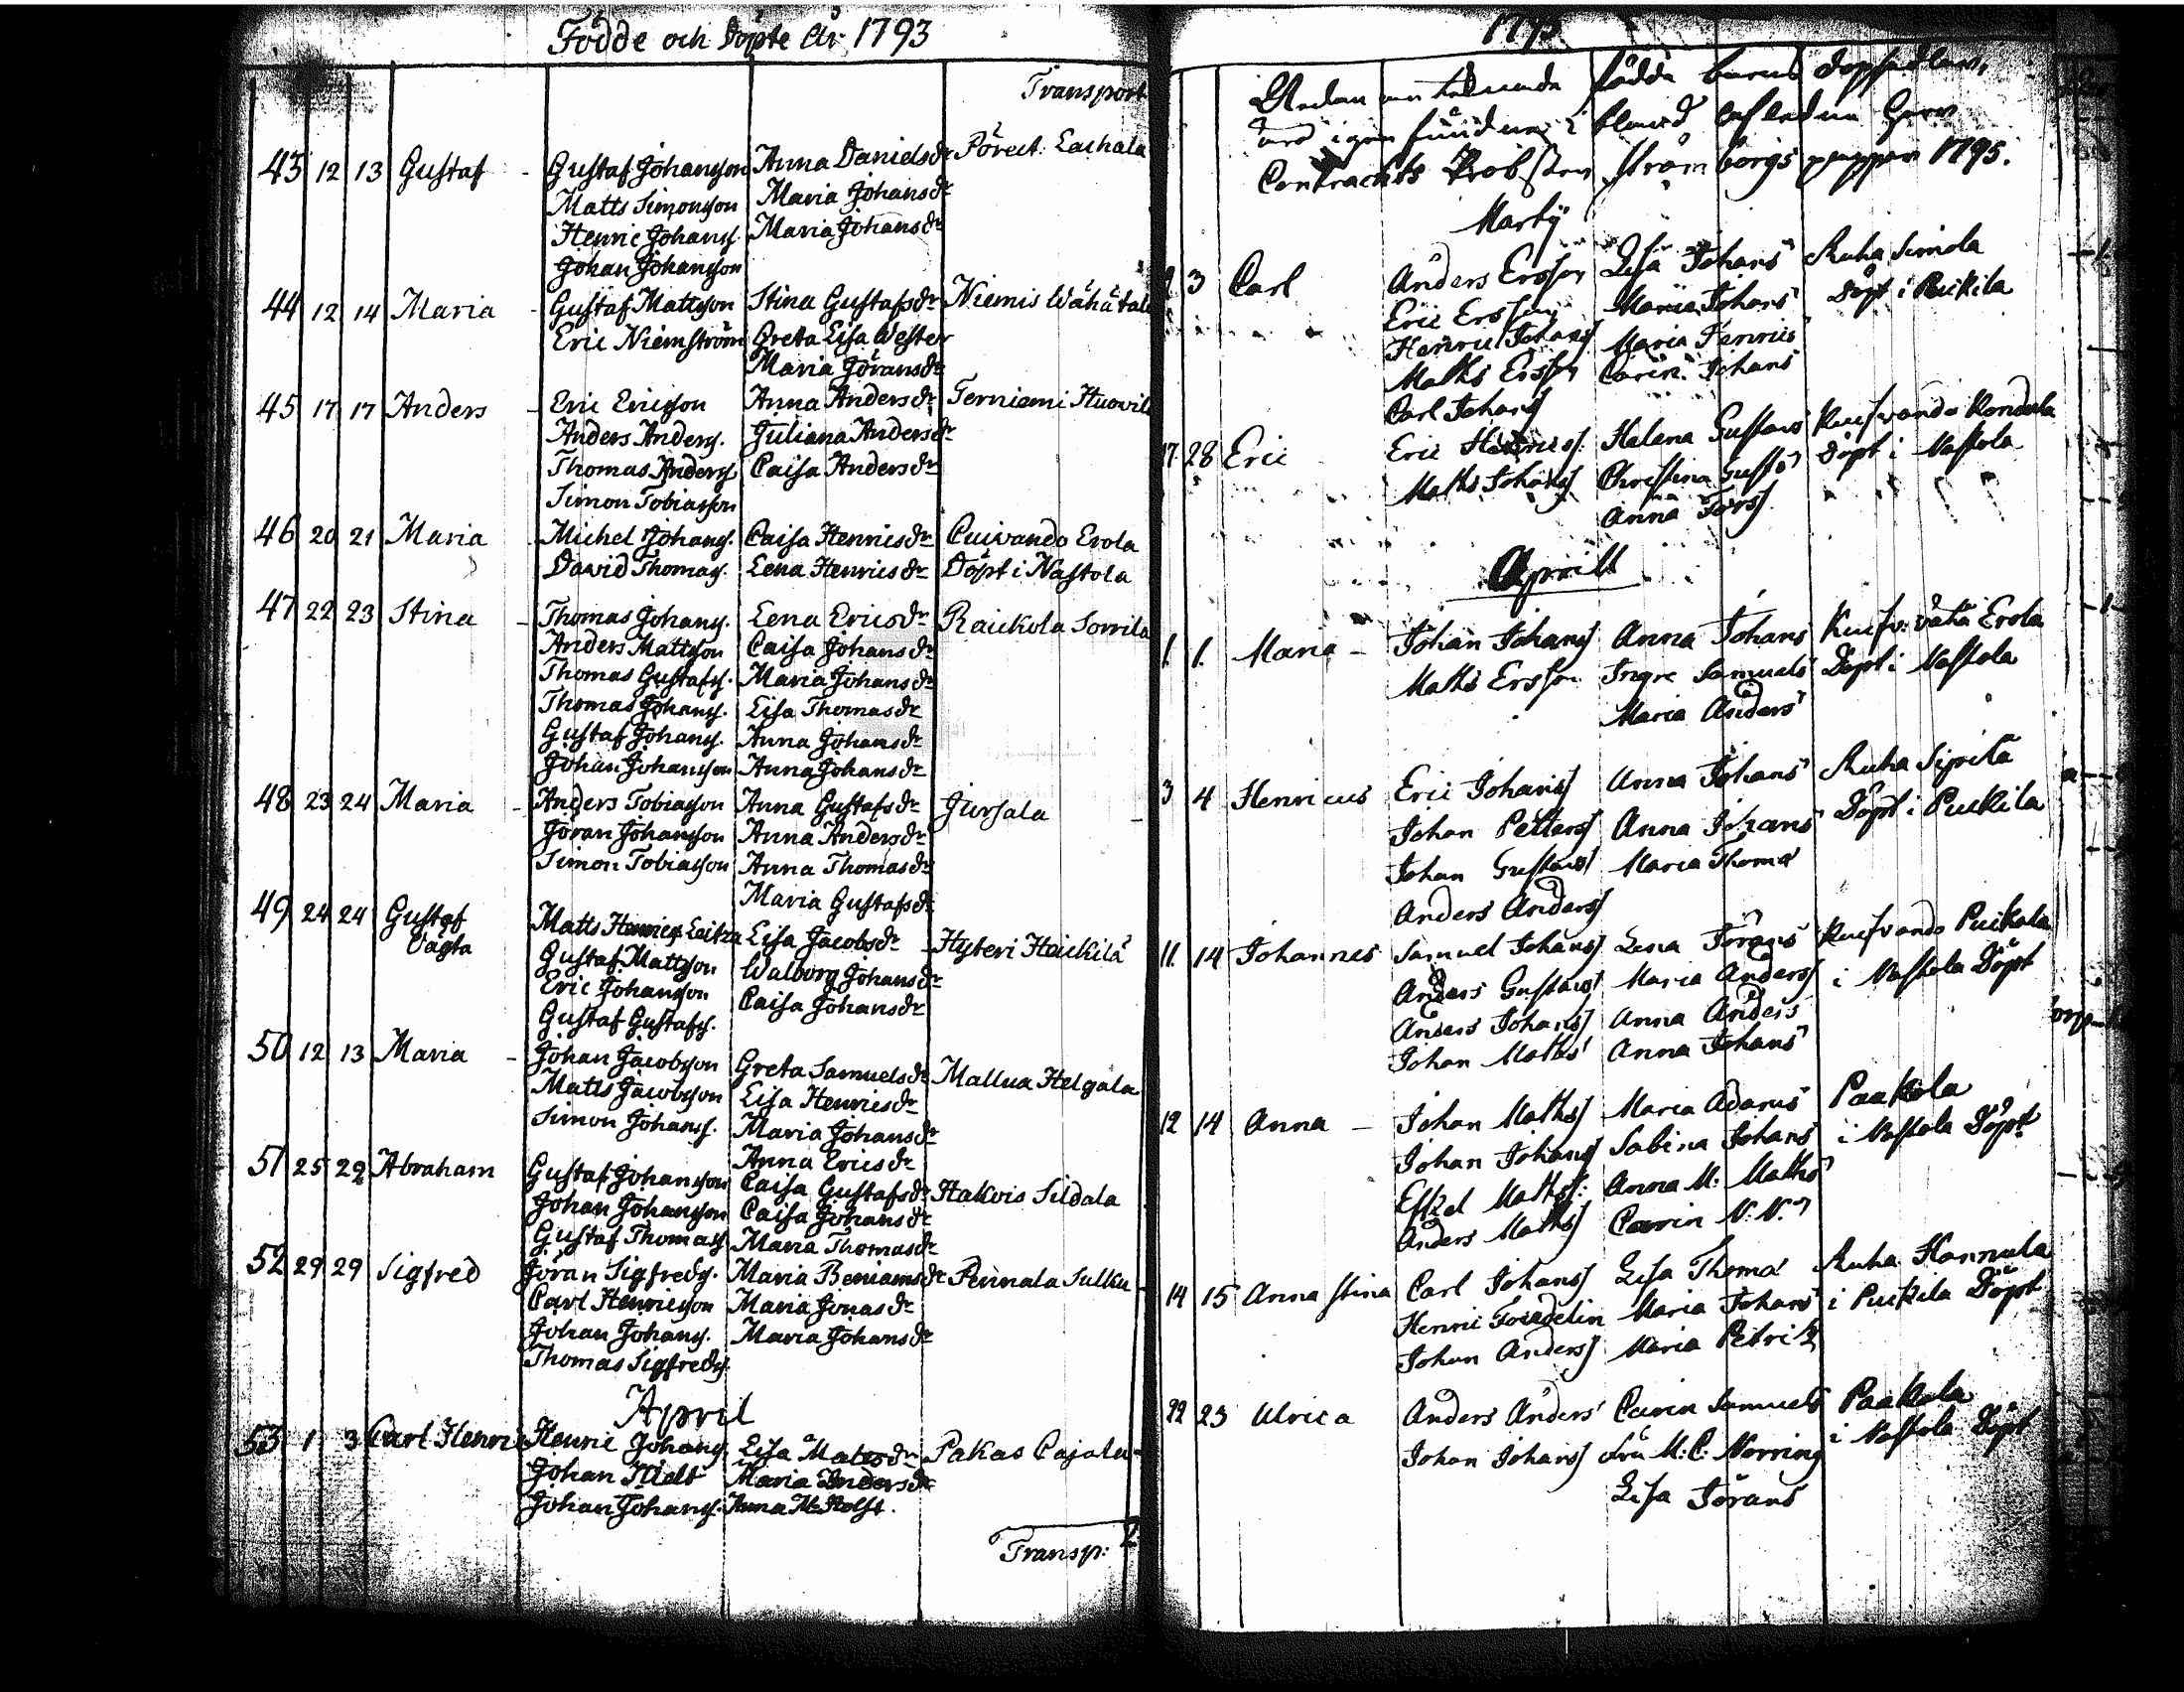 Födde och Döpte År 1793
Transport
43 12 13 Gustaf - Gustaf Johansson Anna Danielsdr
Matts Simonsson Maria Johansdr
Henric Johanss. Maria Johansdr
Johan Johansson
44 12 14 Maria - Gustaf Mattsson Stina Gustafsdr Niemis Wähätalo
Eric Niemström Greta Lisa Wester
Maria Göransdr
45 17 17 Anders - Eric Ericsson Anna Andersdr Terniemi Huovil
Anders Anderss. Juliana Andersdr
Thomas Anderss. Caisa Andersdr
Simon Tobiasson
46 20 21 Maria Michel Johanss. Caisa Henricsdr Cuivando Erola
David Thomass. Lena Henricsdr Döpt i Nastola
47 22 23 Stina - Thomas Johanss. Lena Ericsdr Raickola Sorrila
Anders Mattsson Caisa Johansdr
Thomas Gustafss. Maria Johansdr
Thomas Johanss. Lisa Thomasdr
Gustaf Johanss. Anna Johansdr
Johan Johansson Anna Johansdr
48 23 24 Maria - Anders Tobiasson Anna Gustafsdr Jursala
Jöran Johansson Anna Andersdr
Simon Tobiasson Anna Thomasdr
Maria Gustafsdr
49 24 24 Gustaf Matts Henricss. Lisa Jacobsdr - Hyteri Heickilä
oägta Gustaf Mattsson Walborg Johansdr
Eric Johansson Caisa Johansdr
Gustaf Gustafss.
50 12 13 Maria - Johan Jacobsson Greta Samuelsdr Mallua Helgala
Matts Jacobsson Lisa Henricsdr
Simon Johanss. Maria Johansdr
Anna Ericsdr
51 25 29 Abraham Gustaf Johansson Caisa Gustafsdr Hakois Sildala
Johan Johansson Caisa Johansdr
Gustaf Thomass. Maria Thomasdr
52 29 29 Sigfred Jöran Sigfredss. Maria Beniamsdr Pennala Sulku
Carl Henricsson Maria Jonasdr
Johan Johanss. Maria Johansdr
Thomas Sigfredss.
April
53 1 3 Carl Henric Henric Johanss. Lisa Matsdr Pakas Cajala
Johan Maria Andersdr
Johan Johanss. Anna M.
Transp:
1793
födda barns
Contracts Probsten Strömborgs papper 1795.
Martij
3 Carl Anders Ersson Lisa Johans Ruha Simola
Eric Ersson Maria Johans Döpt i Puikila
Henric Johanss Maria Henrics
Maths Ersson Carin Johans
Carl Johanss
17. 28 Eric Eric Henricss. Helena Gustavs Kuifvando Kondula
Maths Johanss Christina Gustfs Döpt i Nastola
Anna
Aprill
1. 1. Maria - Johan Johanss Anna Johans Kuifv: vähä Erola
Maths Ersson Ingr Samuels Döpt i Nastola
Maria Anders
3 4 Henricus Eric Johanss Anna Johans Ruha Siprila
Johan Petterss Anna Johans Döpt i Puckila
Johan Gustavs Maria Thoms
Anders Anderss
11. 14 Johannes Samuel Johanss Lena Jörans Kuifvando Puikala
Anders Gustavss Maria Anderss i Nastola Döpt
Anders Johanss Anna Anders
Johan Maths Anna Johans
12 14 Anna - Johan Mathss Maria Adams Paakola
Johan Johanss Sabina Johans i Nastola Döpt
Mathss. Anna M. Maths
Anders Mathss Carin N. N.
14 15 Anna Stina Carl Johanss Lisa Thoms Ruha Hannula
Henric Friedelin Maria Johans i Puikila Döpt
Johan Anderss Maria Petri
22 23 Ulrica Anders Anders Carin Samuels Paakola
Johan Johanss Fru M. C. Norring i Nastola Döpt
Lisa Jörans